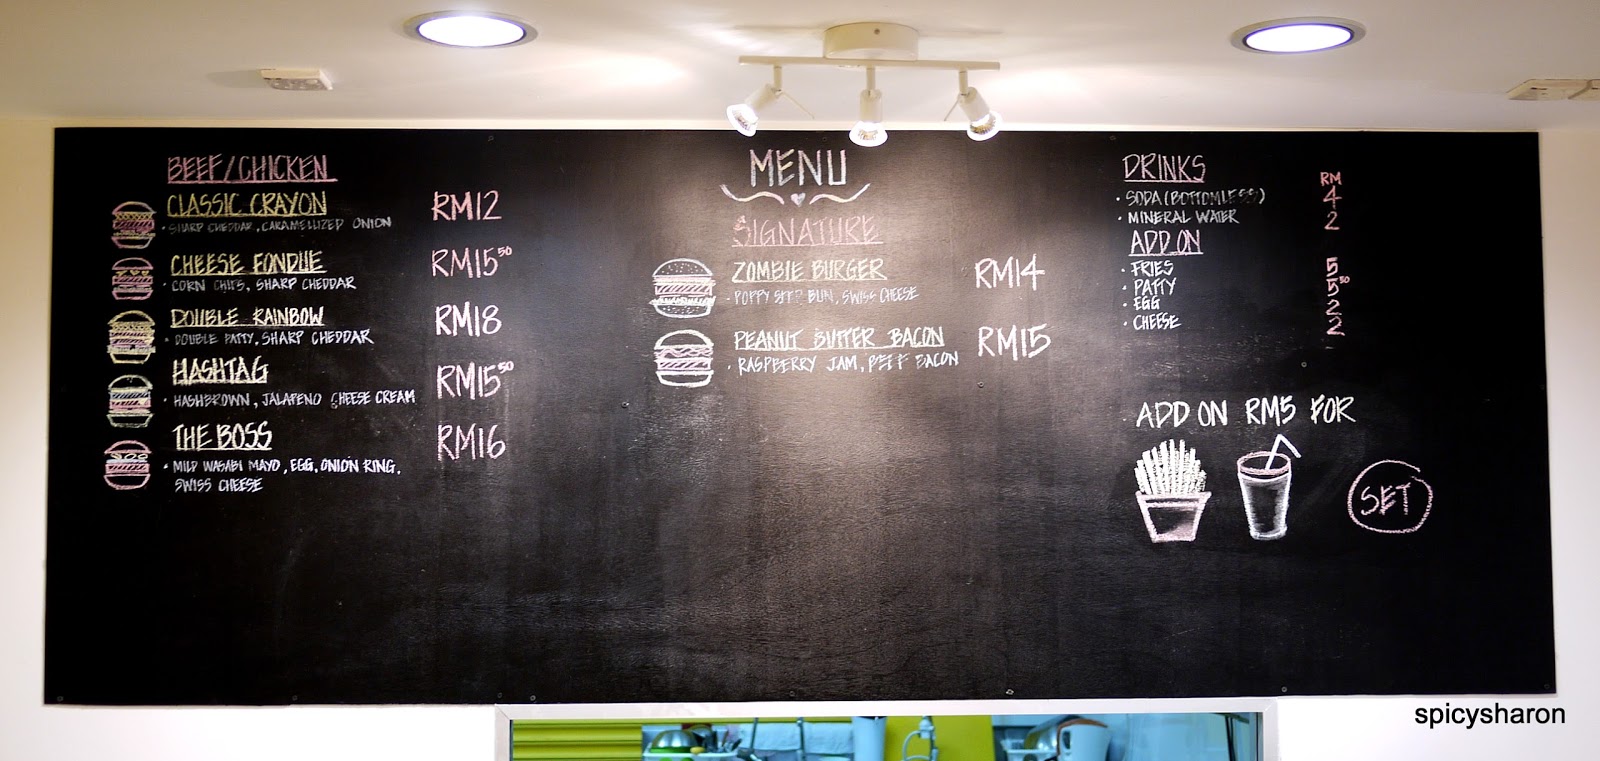 BEEF/CHICKEN
CLASSIC CRAYON RM12
• SHARP CHEDDAR, CARAMELLIZED ONION
CHEESE FONDUE RM15⁵⁰
• CORN CHIPS, SHARP CHEDDAR
DOUBLE RAINBOW RM18
• DOUBLE PATTY, SHARP CHEDDAR
HASHTAG RM15⁵⁰
• HASHBROWN, JALAPENO CHEESE CREAM
THE BOSS RM16
• MILD WASABI MAYO, EGG, ONION RING,
SWISS CHEESE
MENU
SIGNATURE
ZOMBIE BURGER RM14
• POPPY BUN, SWISS CHEESE
PEANUT BUTTER BACON RM15
• RASPBERRY JAM, BEEF BACON
DRINKS RM
• SODA (BOTTOMLESS) 4
• MINERAL WATER 2
ADD ON
• FRIES 5
• PATTY 5⁵⁰
• EGG 2
• CHEESE 2
ADD ON RM5 FOR
SET
spicysharon